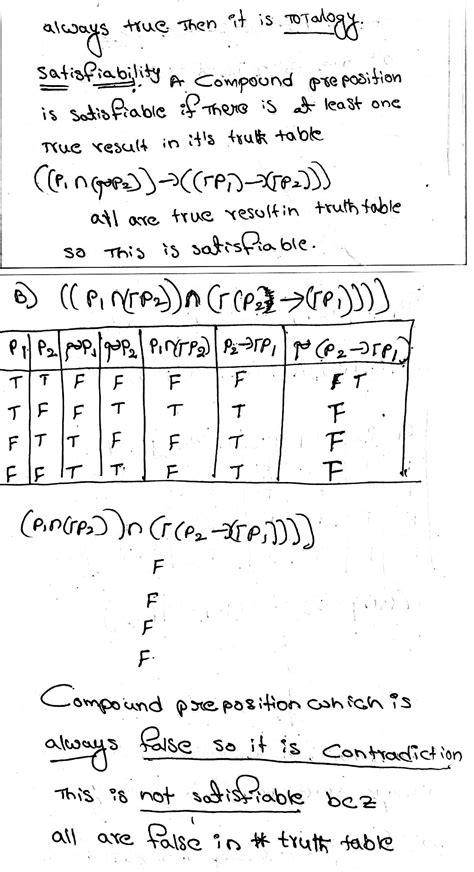 always true Then it is TOTalogy.
Satisfiability A Compound preposition
is satisfiable if There is at least one
True result in it's truth table
((P₁ ∩ (~P₂)) → ((~P₁) → (~P₂)))
all are true result in truth table
so This is satisfiable.
B) ((P₁ ∩ (~P₂)) ∩ (~(P₂ → (~P₁))))
P₁ P₂ ~P₁ ~P₂ P₁∩(~P₂) P₂→~P₁ ~(P₂→~P₁)
T T F F F F T
T F F T T T F
F T T F F T F
F F T T F T F
(P₁∩(~P₂)) ∩ (~(P₂→(~P₁))))
F
F
F
F.
Compound preposition which is
always false so it is Contradiction
This is not satisfiable bcz
all are false in truth table